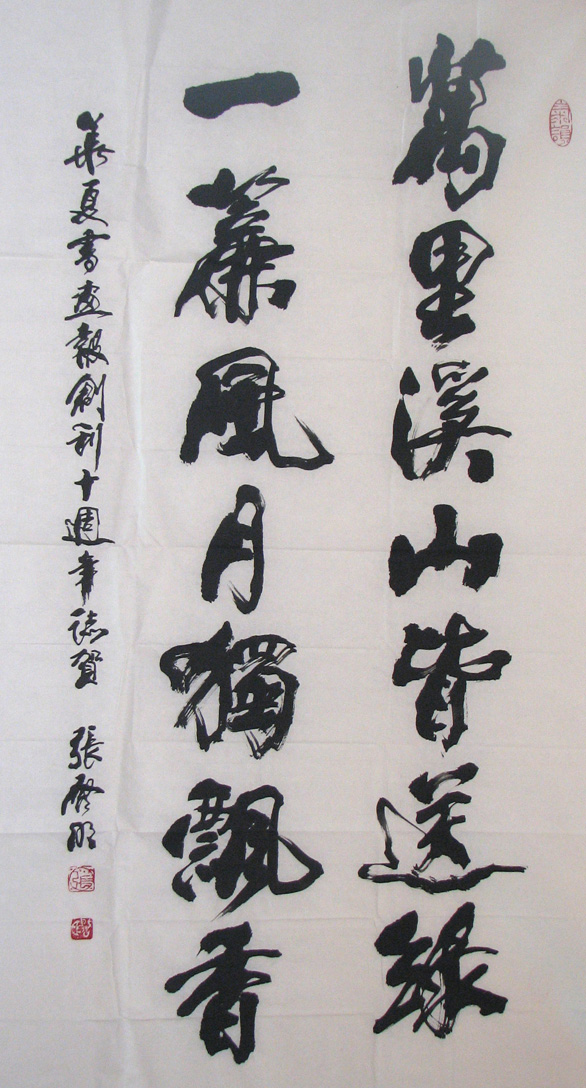 萬里溪山皆送綠
一簾風月獨飄香
華夏書畫報創刊十週年誌賀 張啓明